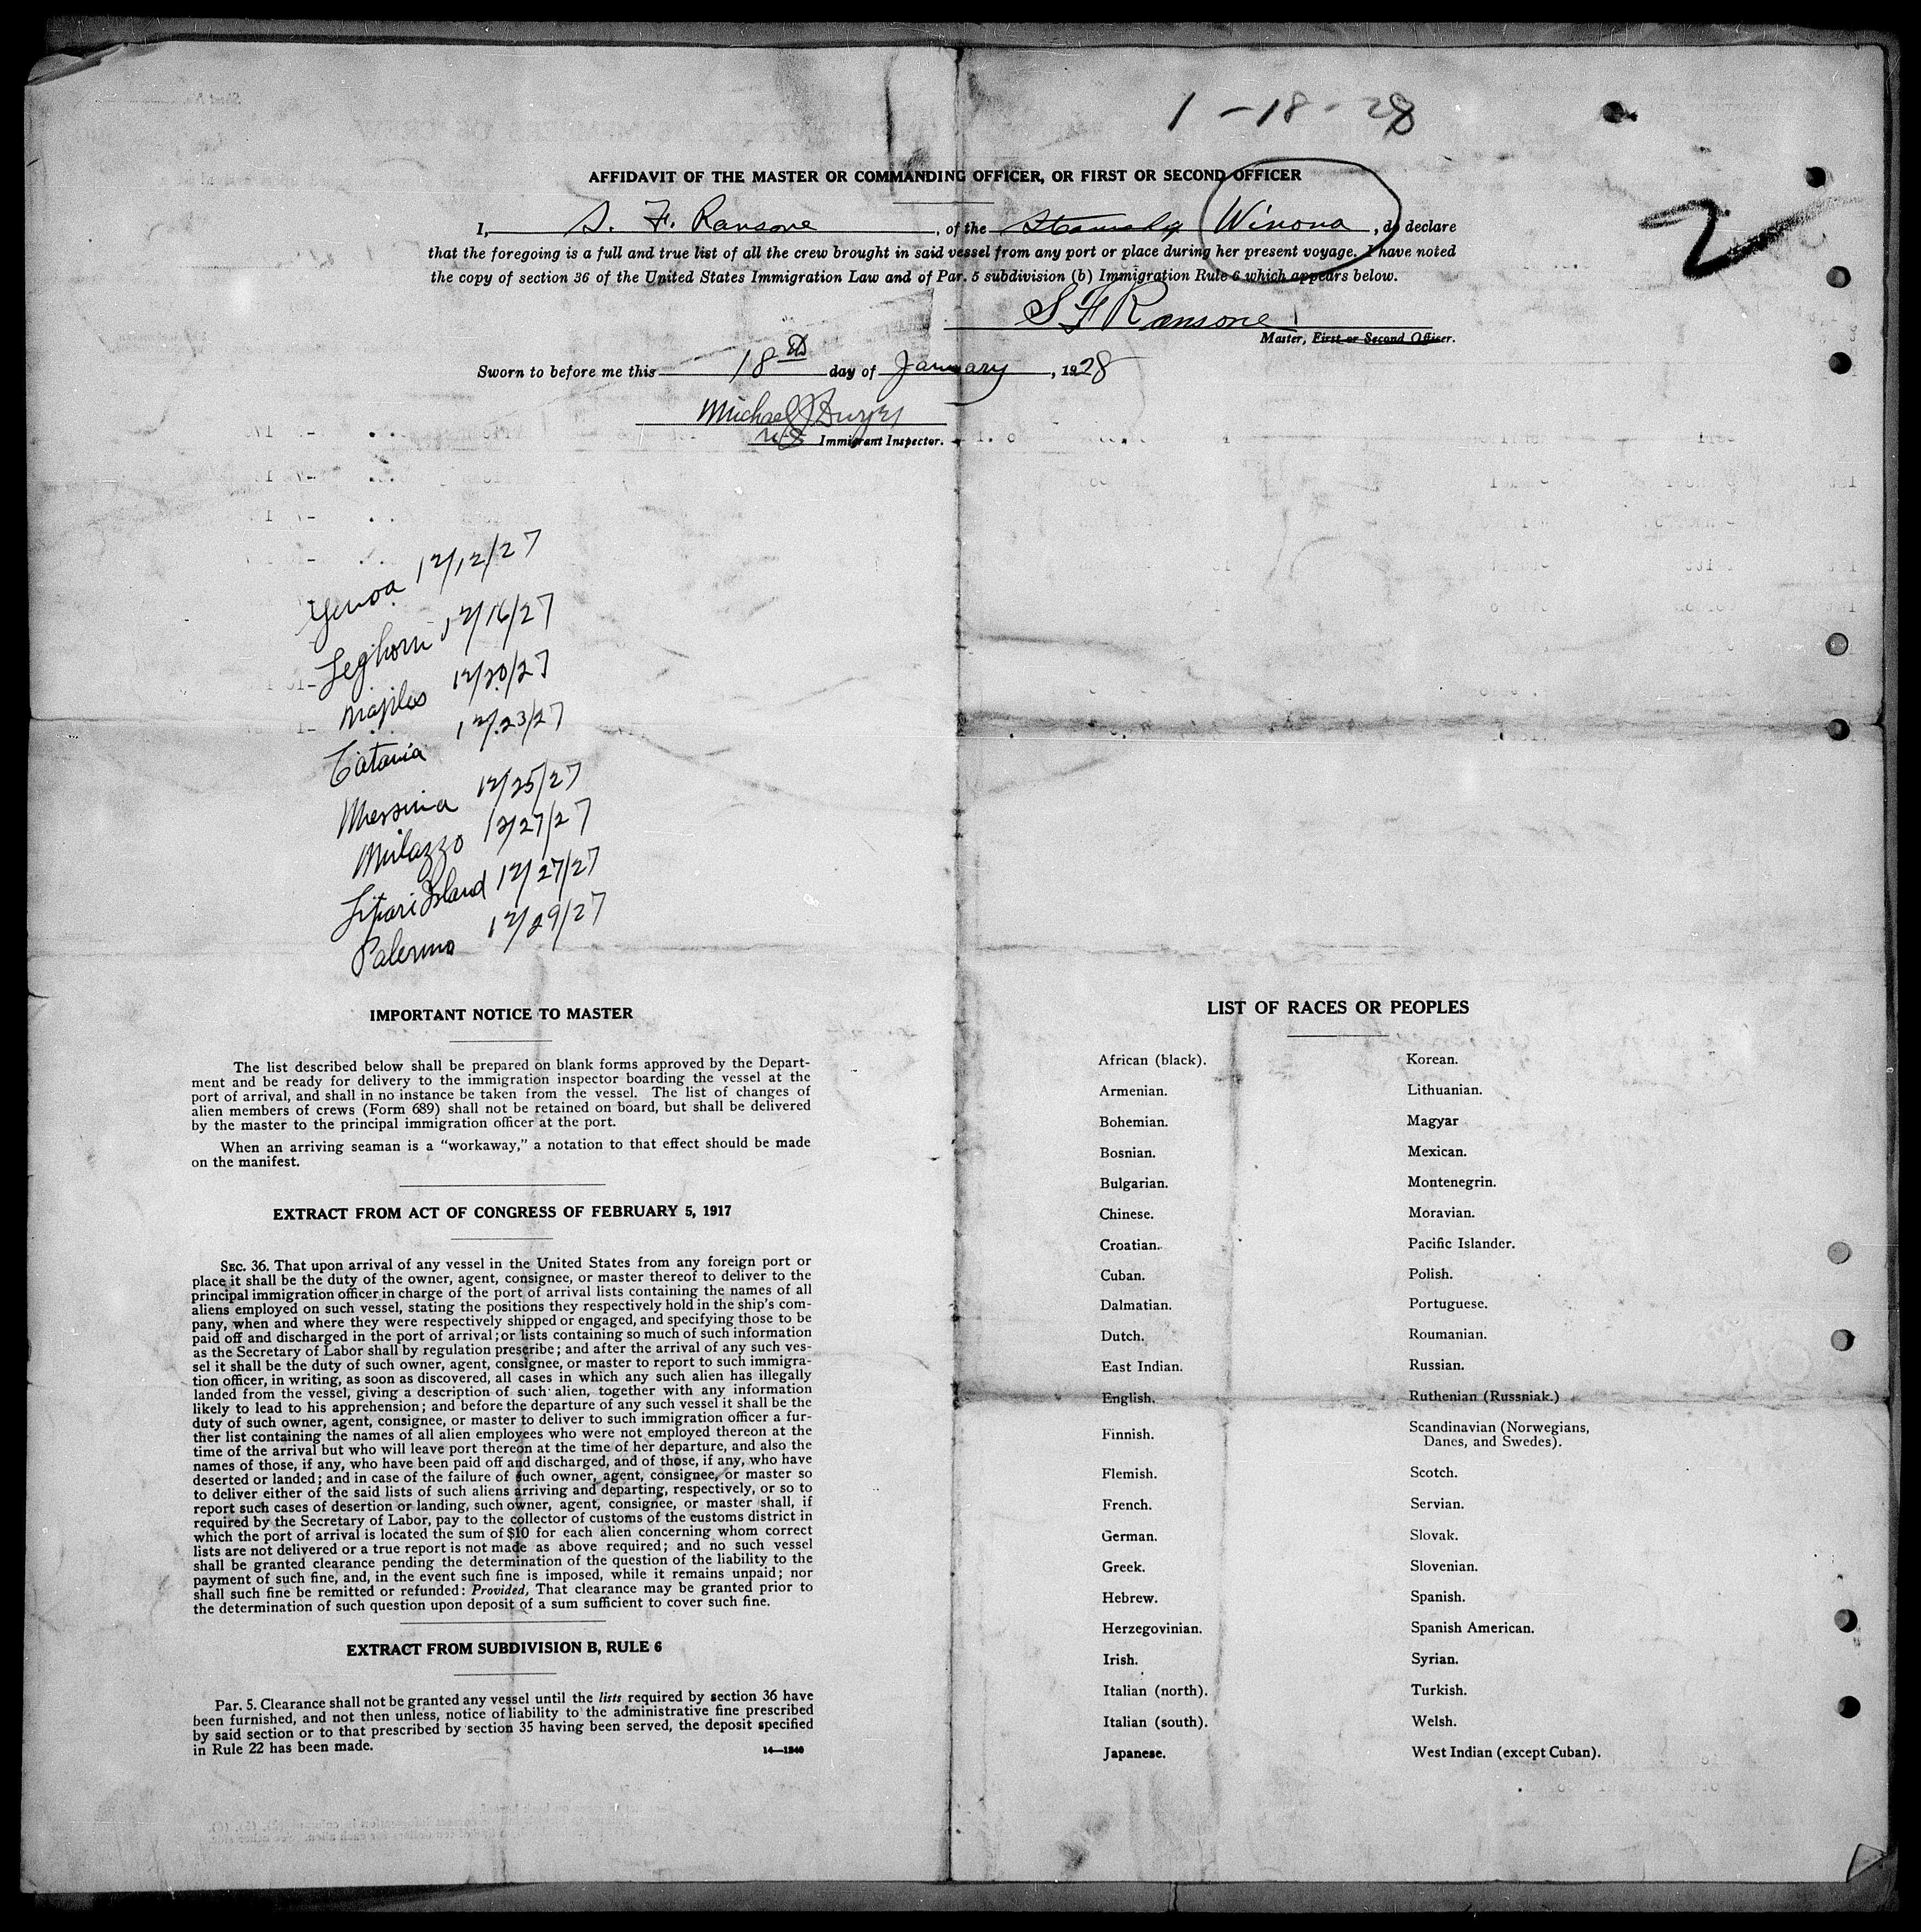 1 - 18 - 28
2
AFFIDAVIT OF THE MASTER OR COMMANDING OFFICER, OR FIRST OR SECOND OFFICER
I, S. F. Ransone, of the Steamship Winona, do declare
that the foregoing is a full and true list of all the crew brought in said vessel from any port or place during her present voyage. I have noted
the copy of section 36 of the United States Immigration Law and of Par. 5 subdivision (b) Immigration Rule 6 which appears below.
S F Ransone
Master, First or Second Officer.
Sworn to before me this 18th day of January, 1928
Michael J
Immigrant Inspector.
Genoa 12/12/27
Leghorn 12/16/27
Naples 12/20/27
Catania 12/23/27
Messina 12/25/27
Milazzo 12/27/27
Lipari Island 12/27/27
Palermo 12/29/27
IMPORTANT NOTICE TO MASTER
The list described below shall be prepared on blank forms approved by the Depart-
ment and be ready for delivery to the immigration inspector boarding the vessel at the
port of arrival, and shall in no instance be taken from the vessel. The list of changes of
alien members of crews (Form 689) shall not be retained on board, but shall be delivered
by the master to the principal immigration officer at the port.
When an arriving seaman is a “workaway,” a notation to that effect should be made
on the manifest.
EXTRACT FROM ACT OF CONGRESS OF FEBRUARY 5, 1917
SEC. 36. That upon arrival of any vessel in the United States from any foreign port or
place it shall be the duty of the owner, agent, consignee, or master thereof to deliver to the
principal immigration officer in charge of the port of arrival lists containing the names of all
aliens employed on such vessel, stating the positions they respectively hold in the ship's com-
pany, when and where they were respectively shipped or engaged, and specifying those to be
paid off and discharged in the port of arrival; or lists containing so much of such information
as the Secretary of Labor shall by regulation prescribe; and after the arrival of any such ves-
sel it shall be the duty of such owner, agent, consignee, or master to report to such immigra-
tion officer, in writing, as soon as discovered, all cases in which any such alien has illegally
landed from the vessel, giving a description of such alien, together with any information
likely to lead to his apprehension; and before the departure of any such vessel it shall be the
duty of such owner, agent, consignee, or master to deliver to such immigration officer a fur-
ther list containing the names of all alien employees who were not employed thereon at the
time of the arrival but who will leave port thereon at the time of her departure, and also the
names of those, if any, who have been paid off and discharged, and of those, if any, who have
deserted or landed; and in case of the failure of such owner, agent, consignee, or master so
to deliver either of the said lists of such aliens arriving and departing, respectively, or so to
report such cases of desertion or landing, such owner, agent, consignee, or master shall, if
required by the Secretary of Labor, pay to the collector of customs of the customs district in
which the port of arrival is located the sum of $10 for each alien concerning whom correct
lists are not delivered or a true report is not made as above required; and no such vessel
shall be granted clearance pending the determination of the question of the liability to the
payment of such fine, and, in the event such fine is imposed, while it remains unpaid; nor
shall such fine be remitted or refunded: Provided, That clearance may be granted prior to
the determination of such question upon deposit of a sum sufficient to cover such fine.
EXTRACT FROM SUBDIVISION B, RULE 6
Par. 5. Clearance shall not be granted any vessel until the lists required by section 36 have
been furnished, and not then unless, notice of liability to the administrative fine prescribed
by said section or to that prescribed by section 35 having been served, the deposit specified
in Rule 22 has been made.
14—1240
LIST OF RACES OR PEOPLES
African (black).
Armenian.
Bohemian.
Bosnian.
Bulgarian.
Chinese.
Croatian.
Cuban.
Dalmatian.
Dutch.
East Indian.
English.
Finnish.
Flemish.
French.
German.
Greek.
Hebrew.
Herzegovinian.
Irish.
Italian (north).
Italian (south).
Japanese.
Korean.
Lithuanian.
Magyar
Mexican.
Montenegrin.
Moravian.
Pacific Islander.
Polish.
Portuguese.
Roumanian.
Russian.
Ruthenian (Russniak.)
Scandinavian (Norwegians,
Danes, and Swedes).
Scotch.
Servian.
Slovak.
Slovenian.
Spanish.
Spanish American.
Syrian.
Turkish.
Welsh.
West Indian (except Cuban).